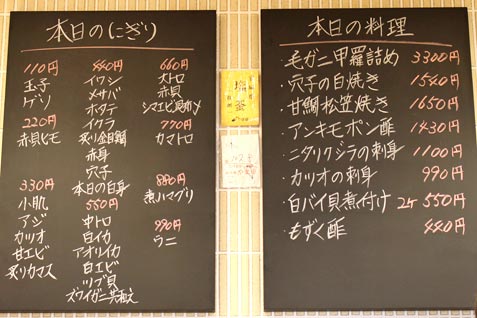 本日のにぎり
110円
玉子
ゲソ
220円
赤貝ヒモ
330円
小肌
アジ
カツオ
甘エビ
炙りカマス
440円
イワシ
メサバ
ホタテ
イクラ
炙り金目鯛
赤身
穴子
本日の白身
550円
中トロ
白イカ
アオリイカ
白エビ
ツブ貝
ズワイガニ共和え
660円
大トロ
赤貝
シマエビ
770円
カマトロ
880円
煮ハマグリ
990円
ウニ
塩釜
本日の料理
・毛ガニ甲羅詰め 3300円
・穴子の白焼き 1540円
・甘鯛松笠焼き 1650円
・アンキモポン酢 1430円
・ニタリクジラの刺身 1100円
・カツオの刺身 990円
・白バイ貝煮付け 2ケ 550円
・もずく酢 440円